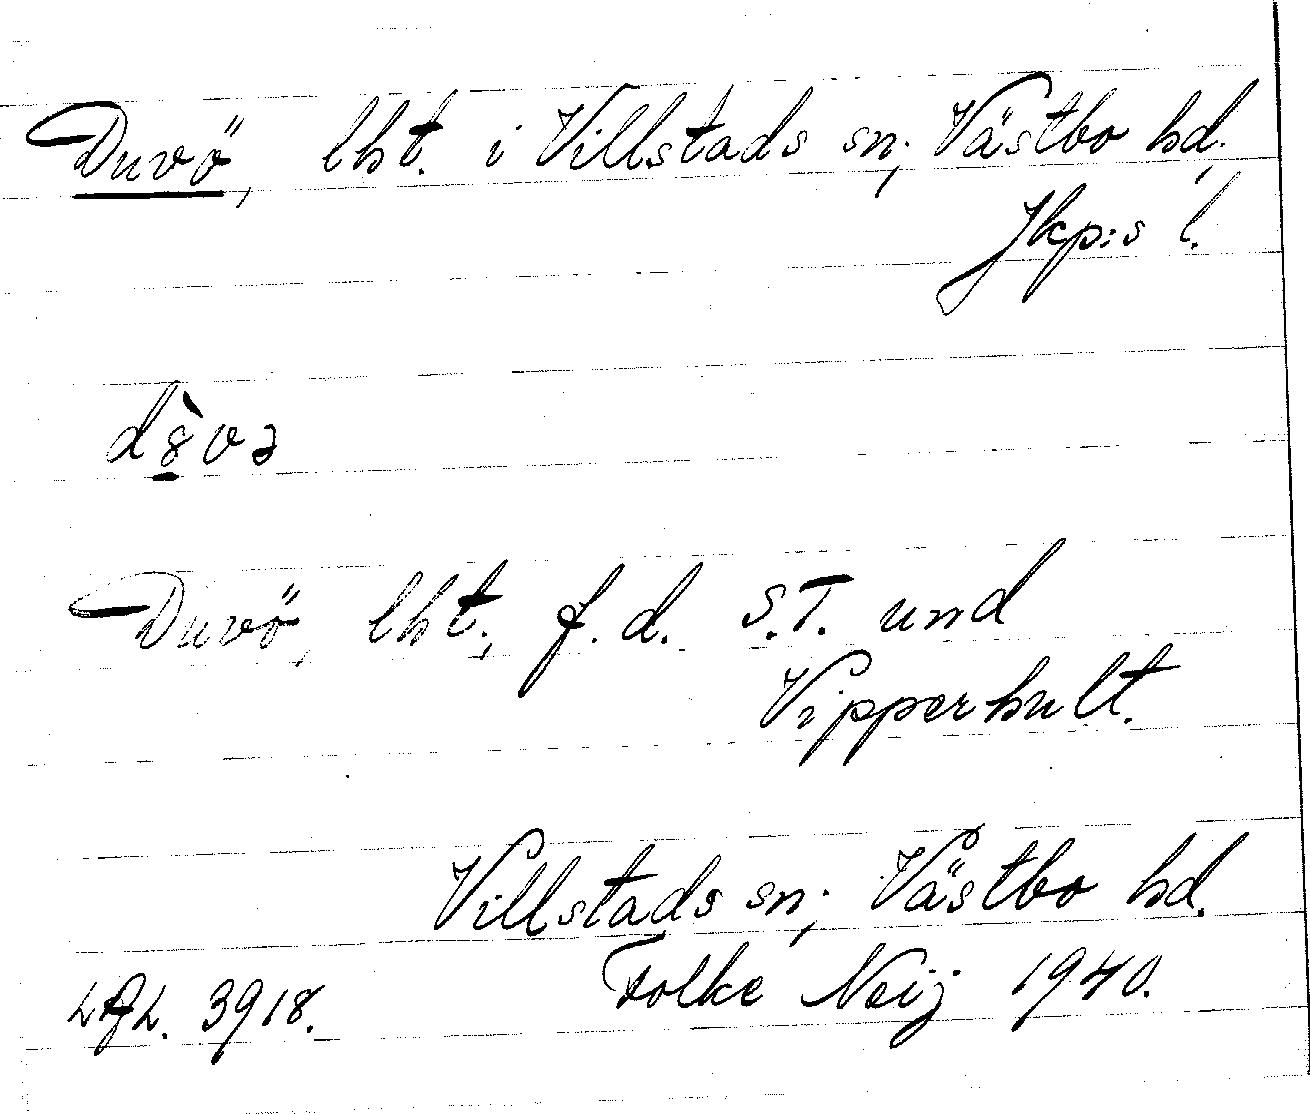 Duvö, lht. i Villstads sn; Västbo hd,
Jkp:s l.
d8̱̀və
Duvö, lht., f.d. S.T. und
Vipperhult.
Villstads sn; Västbo hd.
Folke Neij 1940.
3918.